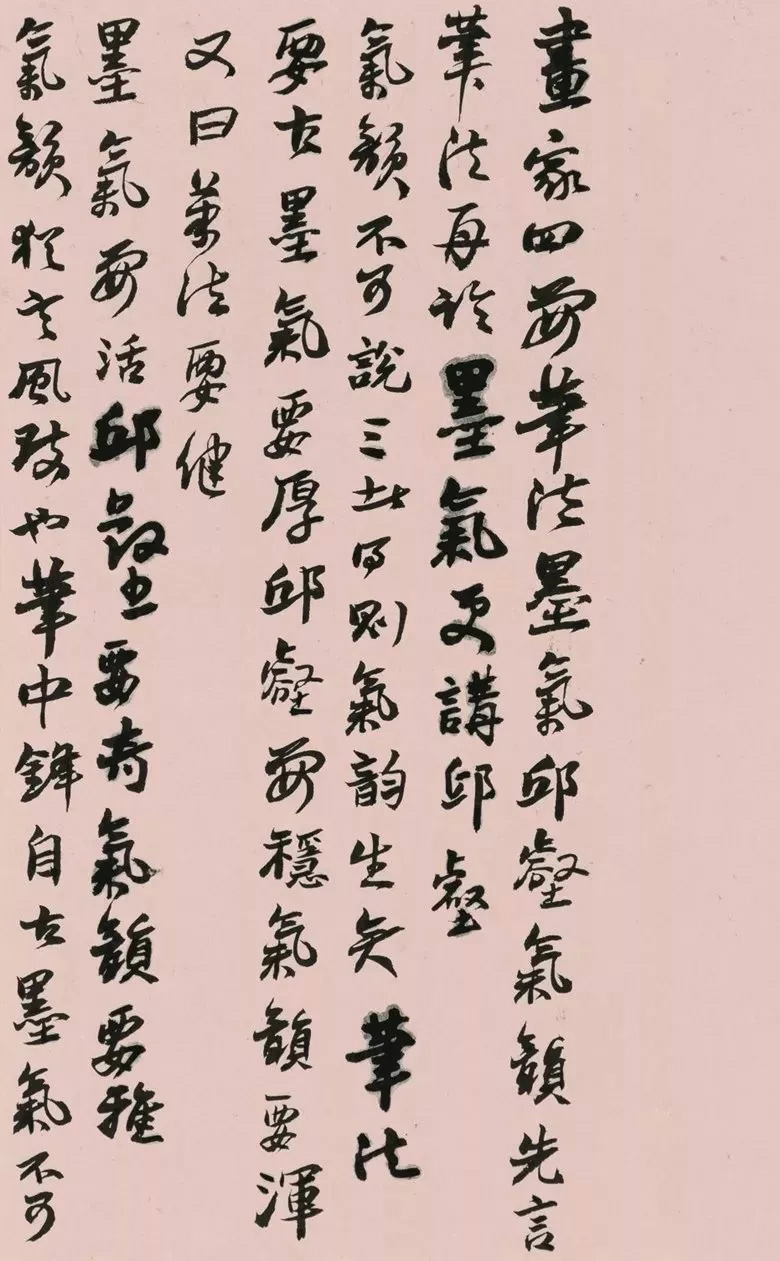 畫家四要筆法墨氣邱壑氣韻先言
筆法再論墨氣更講邱壑
氣韻不可說三者得則氣韵生矣筆法
要古墨氣要厚邱壑要穩氣韻要渾
又曰筆法要健
墨氣要活邱壑要奇氣韻要雅
氣韻猶言風致也筆中鋒自古墨氣不可